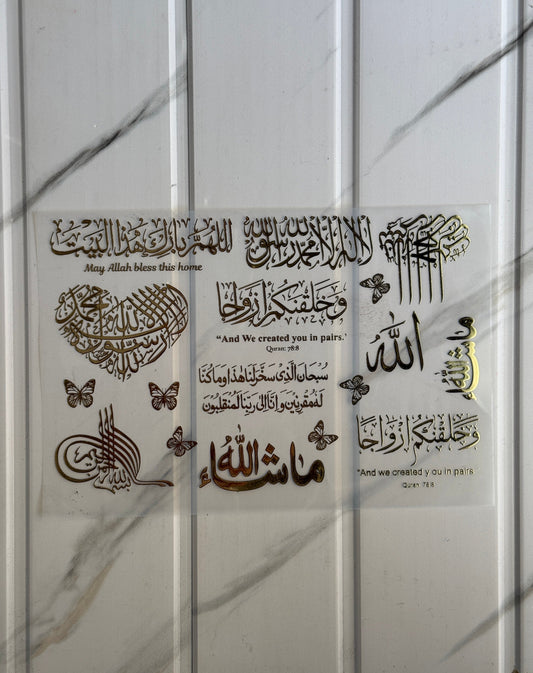 اللهم بارك هذا البيت
May Allah bless this home
لا إله إلا الله محمد رسول الله
وخلقنكم أزواجا
“And We created you in pairs.’
Quran: 78:8
سبحان الذي سخر لنا هذا وما كنا
له مقرنين وإنا إلى ربنا لمنقلبون
ما شاء الله
بسم الله الرحمن الرحيم
الله
ما شاء الله
وخلقنكم أزواجا
"And we created you in pairs
Quran 78:8